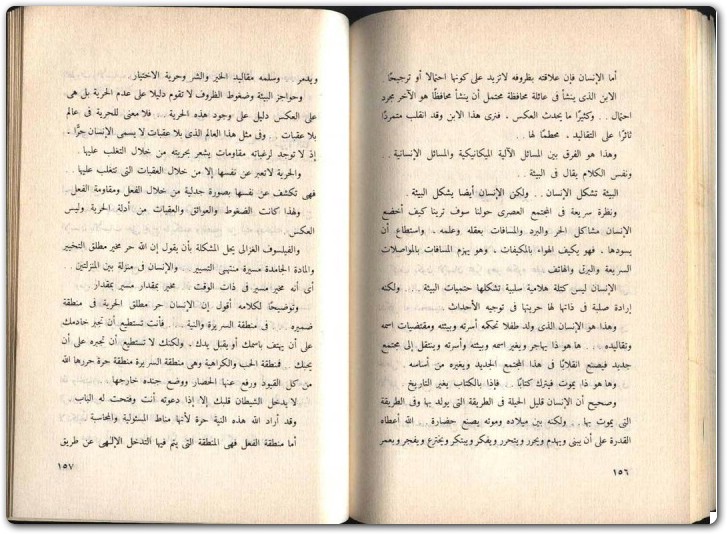 أما الإنسان فإن علاقته بظروفه لاتزيد على كونها احتمالا أو ترجيحًا
الابن الذى ينشأ فى عائلة محافظة محتمل أن ينشأ محافظًا هو الآخر مجرد
احتمال . . وكثيرًا ما يحدث العكس . فنرى هذا الابن وقد انقلب متمردًا
ثائرًا على التقاليد . محطمًا لها . .
وهذا هو الفرق بين المسائل الآلية الميكانيكية والمسائل الإنسانية . .
ونفس الكلام يقال فى البيئة .
البيئة تشكل الإنسان . . ولكن الإنسان أيضا يشكل البيئة . .
ونظرة سريعة فى المجتمع العصرى حولنا سوف ترينا كيف أخضع
الإنسان مشاكل الحر والبرد والمسافات بعقله وعلمه . . واستطاع أن
يسودها . فهو يكيف الهواء بالمكيفات . وهو يهزم المسافات بالمواصلات
السريعة والبرق والهاتف .
الإنسان ليس كتلة هلامية سلبية تشكلها حتميات البيئة . . ولكنه
إرادة صلبة فى ذاتها لها حريتها فى توجيه الأحداث
وهذا هو الإنسان الذى ولد طفلا تحكمه أسرته وبيئته ومقتضيات اسمه
وتقاليده . . ها هو ذا يهاجر ويغير اسمه وبيئته وأسرته وينتقل إلى مجتمع
جديد فيصنع انقلابًا فى هذا المجتمع الجديد ويغيره من أساسه .
وها هو ذا يموت فيترك كتابًا . . فإذا بالكتاب يغير التاريخ
وصحيح أن الإنسان قليل الحيلة فى الطريقة التى يولد بها وفى الطريقة
التى يموت بها . . ولكنه بين ميلاده وموته يصنع حضارة . . الله أعطاه
القدرة على أن يبنى ويهدم ويحرر ويتحرر ويفكر ويبتكر ويخترع ويفجر ويعمر
١٥٦
ويدمر وسلمه مقاليد الخير والشر وحرية الاختيار
وحواجز البيئة وضغوط الظروف لا تقوم دليلا على عدم الحرية بل هى
على العكس دليلى على وجود هذه الحرية . . فلا معنى للحرية فى عالم
بلا عقبات . . وفى مثل هذا العالم الذى بلا عقبات لا يسمى الإنسان حرًّا .
إذ لا توجد لرغباته مقاومات يشعر بحريته من خلال التغلب عليها .
والحرية لاتعبر عن نفسها إلا من خلال العقبات التى تتغلب عليها . .
فهى تكشف عن نفسها بصورة جدلية من خلال الفعل ومقاومة الفعل .
ولهذا كانت الضغوط والعوائق والعقبات من أدلة الحرية وليس
العكس
والفيلسوف الغزالى يحل المشكلة بأن يقول إن الله حر مخير مطلق التخيير
والمادة الجامدة مسيرة منتهى التسيير والإنسان فى منزلة بين المنزلتين .
أى أنه مخير مسير فى ذات الوقت . مخير بمقدار مسير بمقدار
وتوضيحًا لكلامه أقول إن الإنسان حر مطلق الحرية فى منطقة
ضميره . . فى منطقة السريرة والنية . . فأنت تستطيع أن تجبر خادمك
على أن يهتف باسمك أو يقبل يدك . ولكنك لا تستطيع أن تجبره على أن
يحبك . فمنطقة الحب والكراهية وهى منطقة السريرة منطقة حرة حررها الله
من كل القيود ورفع عنها الحصار ووضع جنده خارجها . .
لا يدخل الشيطان قلبك إلا إذا دعوته أنت وفتحت له الباب .
وقد أراد الله هذه النية حرة لأنها مناط المسئولية والمحاسبة
أما منطقة الفعل فهى المنطقة التى يتم فيها التدخل الإلهى عن طريق
١٥٧